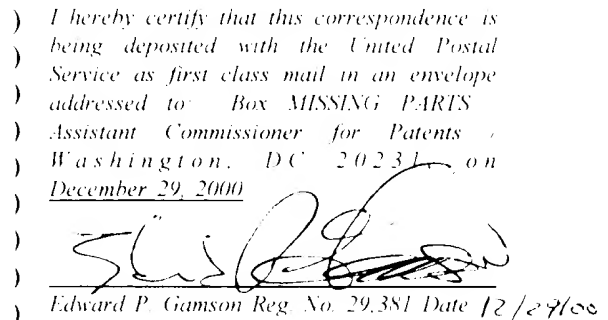 ) I hereby certify that this correspondence is
) being deposited with the United Postal
) Service as first class mail in an envelope
) addressed to Box MISSING PARTS
) Assistant Commissioner for Patents
) Washington, DC 20231, on
) December 29, 2000
)
)
)
) Edward P. Gamson Reg. No. 29,381 Date 12/29/00